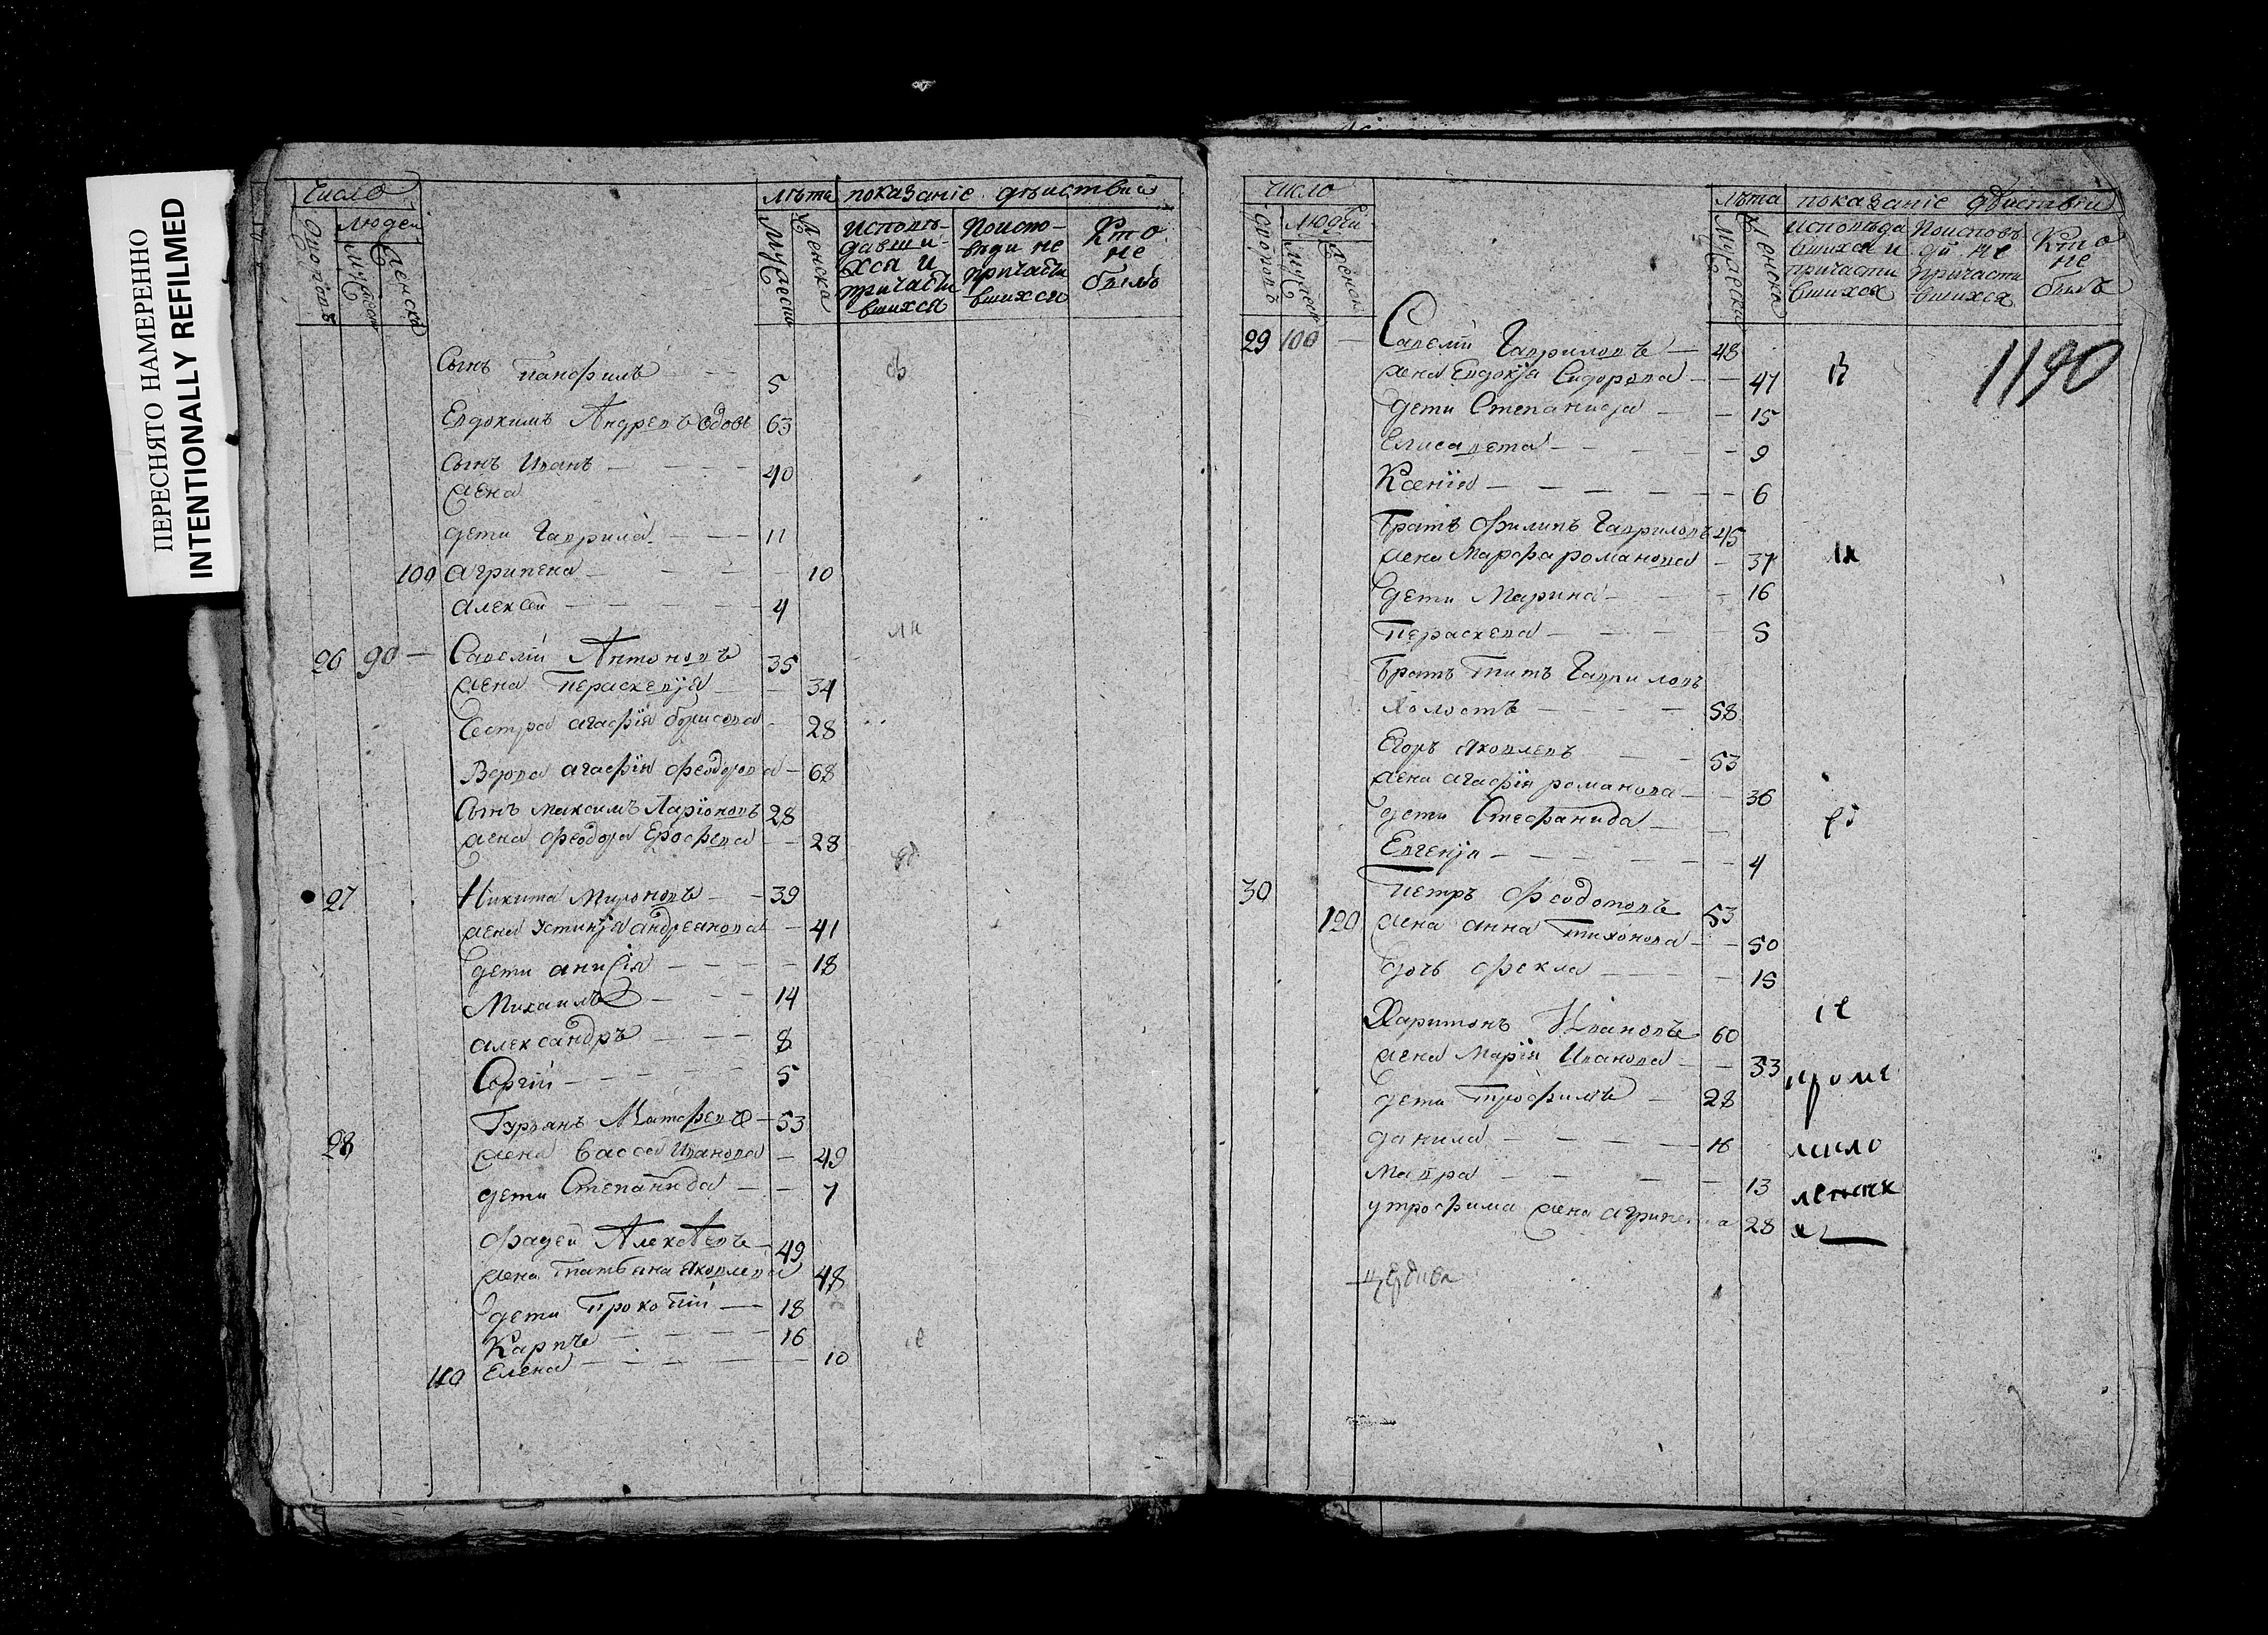 ПЕРЕСНЯТО НАМЕРЕННО
INTENTIONALLY REFILMED
число
Людей
Лѣта показаніе дѣиствій
Дворовъ
Мужеска
Женска
Мужеска
Женска
исповѣ-
давши-
хся и
причасти
вшихся
Поиспо-
вѣди не
причасти
вшихся
Кто
не
былъ
Сынъ Панфилъ 5
Евдокимъ Андревъ вдовъ 63
Сынъ Иванъ 40
жена
дети Гаврила 11
100 агрипена 10
алексей 4
26 90 Савелій Антоновъ 35
жена Пераскевiя 34
Сестра агафiя борисова 28
Вдова агафiя Феодорова 68
Сынъ Максимъ Ларiоновъ 28
жена Феодора Ерофева 28
27 Никита Мироновъ 39
жена Устинiя андреанова 41
дети анисiя 18
Михаилъ 14
александръ 8
Сергiй 5
28 Гурьанъ Матфевъ 53
жена Васса Иванова 49
дети Степанида 7
Фадей Алексевъ 49
жена Татьяна Яковлева 48
дети Прокопiй 18
Карпъ 16
110 Елена 10
число
Людей
лѣта показаніе дѣиствій
Дворовъ
Мужеска
Женска
Мужеска
Женска
исповѣда
вшихся и
причасти
вшихся
Поисповѣ
ди не
причасти
вшихся
Кто
не
былъ
1190
29 100 Савелій Гавриловъ 48
жена Евдокiя Сидорова 47
дети Степанида 15
Елисавета 9
Ксенiя 6
Братъ Филипъ Гавриловъ 45
жена Марфа романова 37
дети Марина 16
Пераскева 5
Братъ Титъ Гавриловъ
Холостъ 58
Егоръ Яковлевъ 53
жена агафiя романова 36
дети Стефанида
Евгенiя 4
30 Петръ Феодотовъ 53
120 жена анна Тихонова 50
дочь Фекла 15
Харитонъ Ивановъ 60
жена Марiя Иванова 53
дети Трофимъ 28
данила 18
Мавра 13
у трофима жена агрипена 28